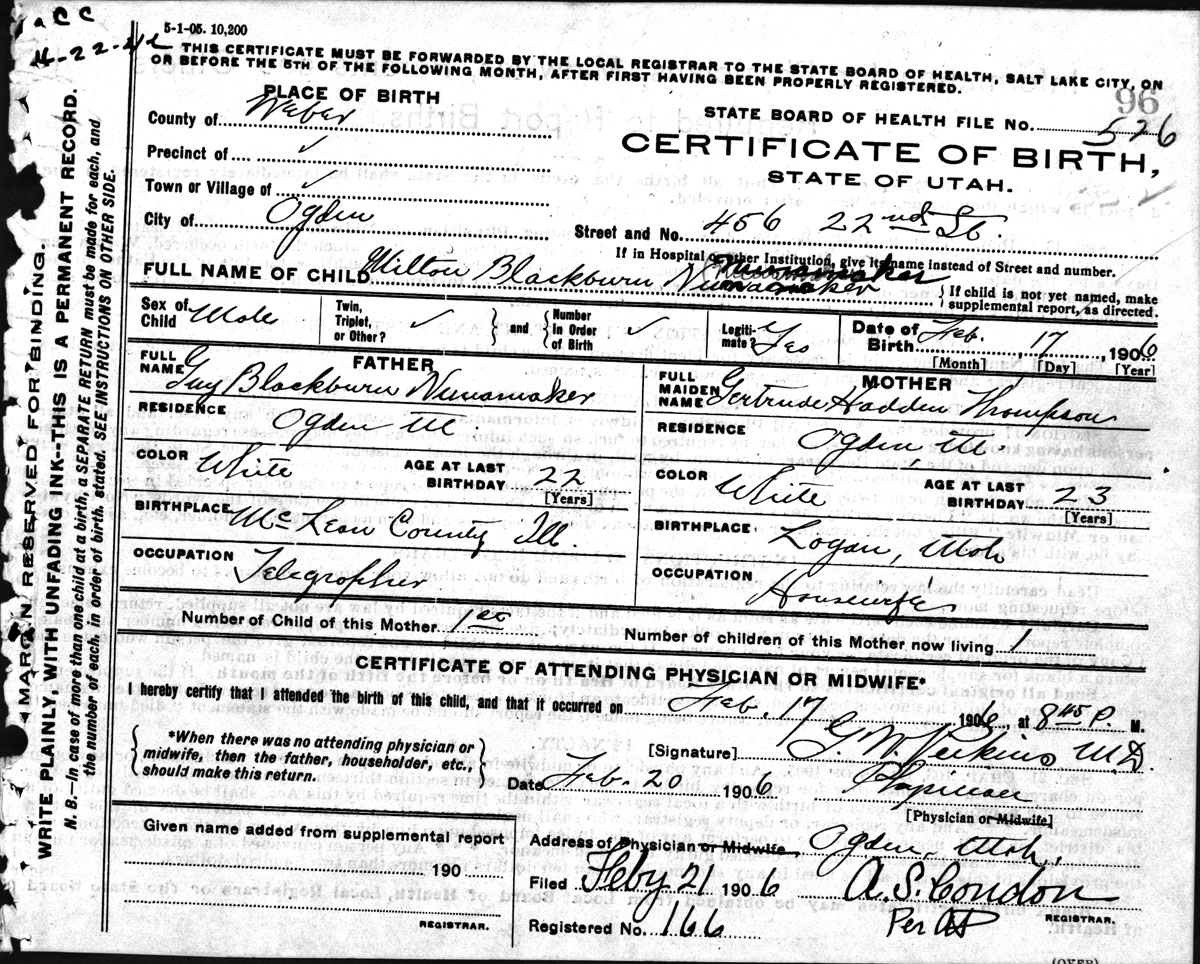 a C C
5-1-05. 10,200
4-22-42
THIS CERTIFICATE MUST BE FORWARDED BY THE LOCAL REGISTRAR TO THE STATE BOARD OF HEALTH, SALT LAKE CITY, ON
OR BEFORE THE 5TH OF THE FOLLOWING MONTH, AFTER FIRST HAVING BEEN PROPERLY REGISTERED.
MARGIN RESERVED FOR BINDING
WRITE PLAINLY, WITH UNFADING INK--THIS IS A PERMANENT RECORD.
N. B.—In case of more than one child at a birth, a SEPARATE RETURN must be made for each, and
the number of each, in order of birth, stated. SEE INSTRUCTIONS ON OTHER SIDE.
96
PLACE OF BIRTH
County of Weber
Precinct of ✓
Town or Village of ✓
City of Ogden
STATE BOARD OF HEALTH FILE No. 526
CERTIFICATE OF BIRTH,
STATE OF UTAH.
Street and No. 456 22nd St.
If in Hospital or other Institution, give its name instead of Street and number.
FULL NAME OF CHILD Milton Blackburn Numamaker Nunamaker
If child is not yet named, make
supplemental report, as directed.
Sex of Child Male
Twin, Triplet, or Other? ✓
and Number In Order of Birth ✓
Legiti-mate? Yes
Date of Birth Feb. 17, 1906
[Month] [Day] [Year]
FATHER
FULL NAME Guy Blackburn Numamaker
RESIDENCE Ogden Ut
COLOR White AGE AT LAST BIRTHDAY 22 [Years]
BIRTHPLACE McLean County Ill.
OCCUPATION Telegropher
MOTHER
FULL MAIDEN NAME Gertrude Hadden Thompson
RESIDENCE Ogden, Ut
COLOR White AGE AT LAST BIRTHDAY 23 [Years]
BIRTHPLACE Logan, Utah
OCCUPATION Housewife
Number of Child of this Mother 1st Number of children of this Mother now living 1
CERTIFICATE OF ATTENDING PHYSICIAN OR MIDWIFE*
I hereby certify that I attended the birth of this child, and that it occurred on Feb. 17 1906, at 8 45 P. M.
*When there was no attending physician or
midwife, then the father, householder, etc.,
should make this return.
[Signature] G. W. Perkins M.D.
Date Feb. 20 1906.
[Physician or Midwife]
Given name added from supplemental report
190
REGISTRAR.
Address of Physician or Midwife, Ogden Utah.
Filed Feby 21 1906 A. S. Condon
Per
REGISTRAR.
Registered No. 166
(OVER)